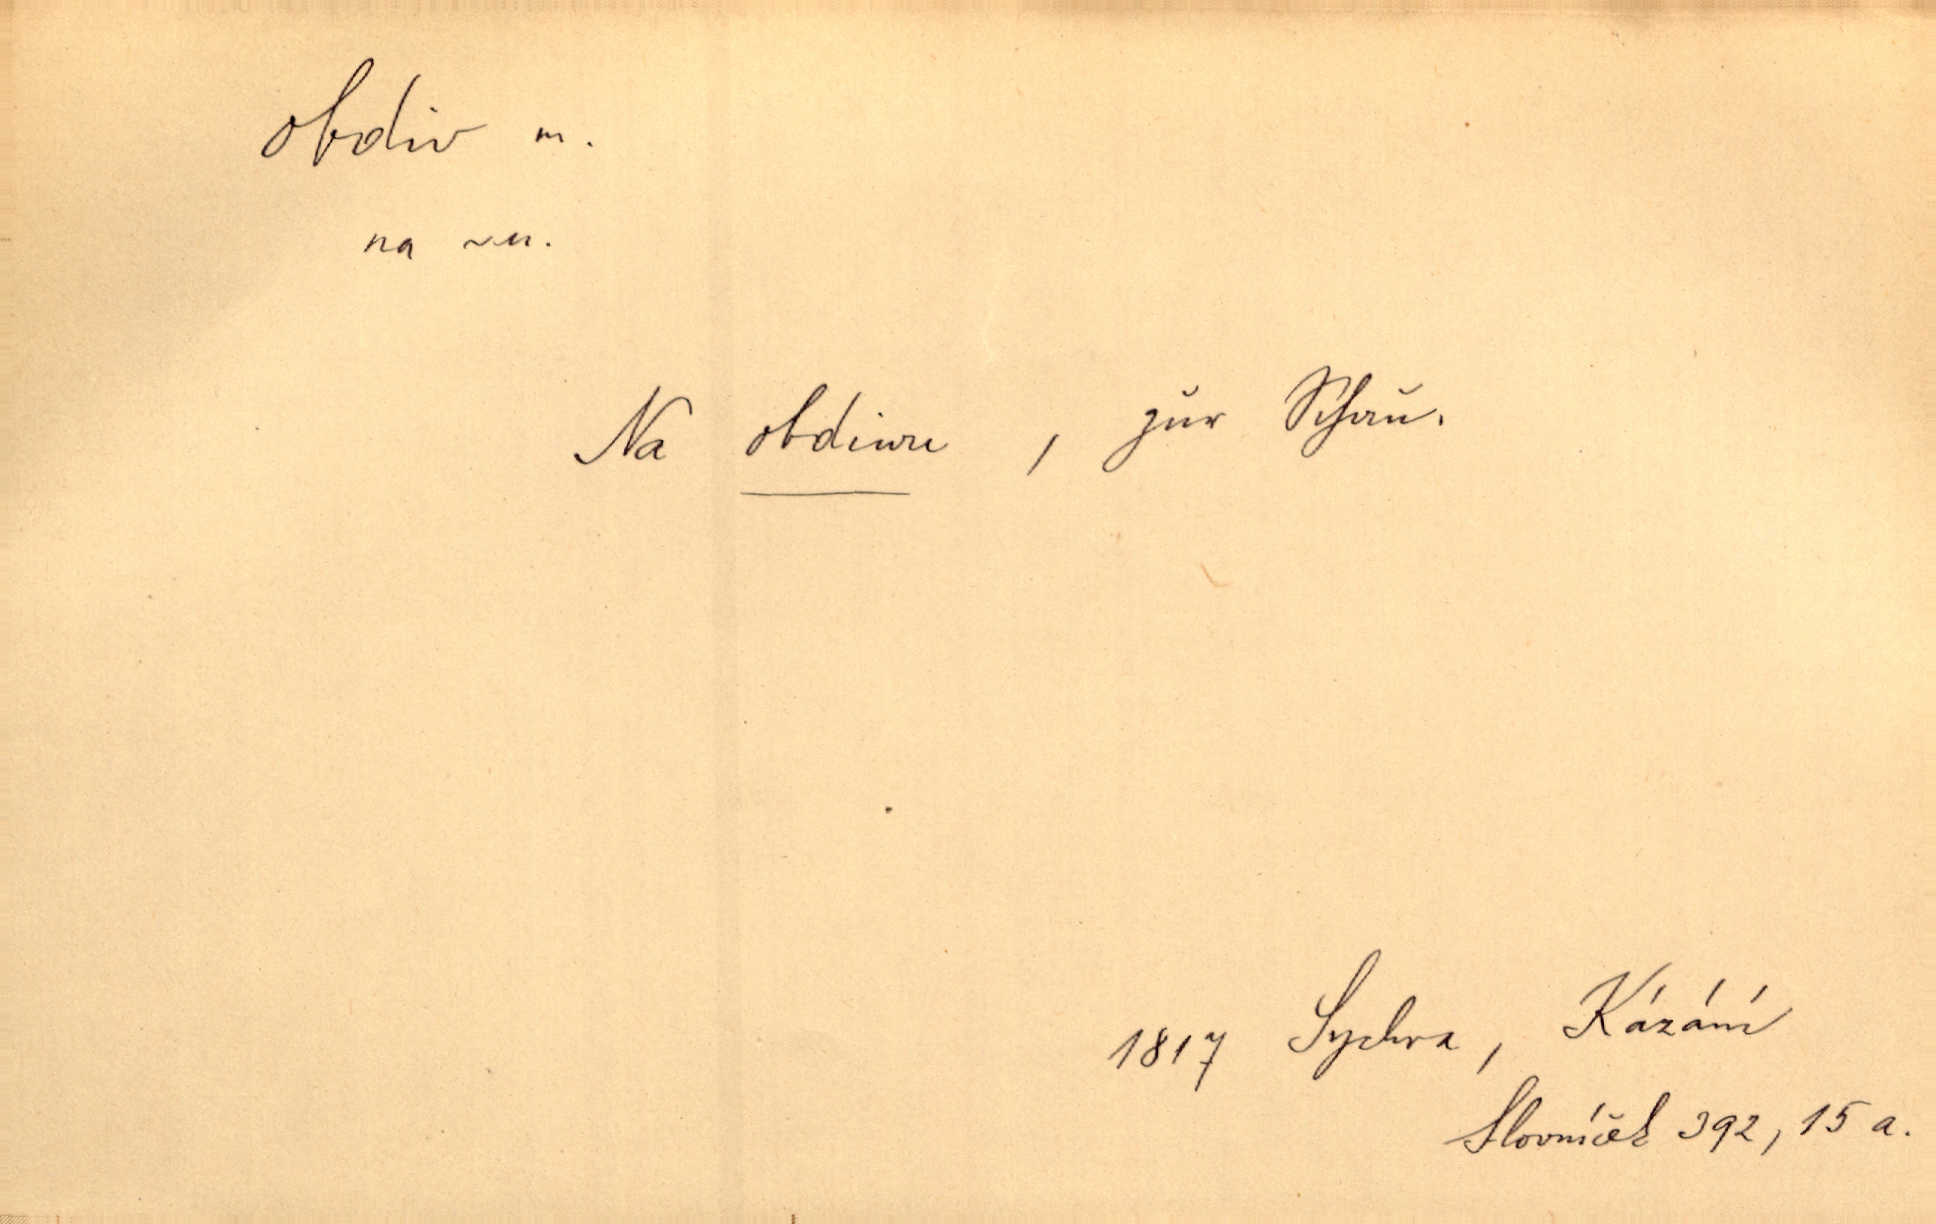 obdiv m.
na ~u.
Na obdiwu, zur Schau.
1817 Sychra, Kázání
Slovníček 392, 15 a.